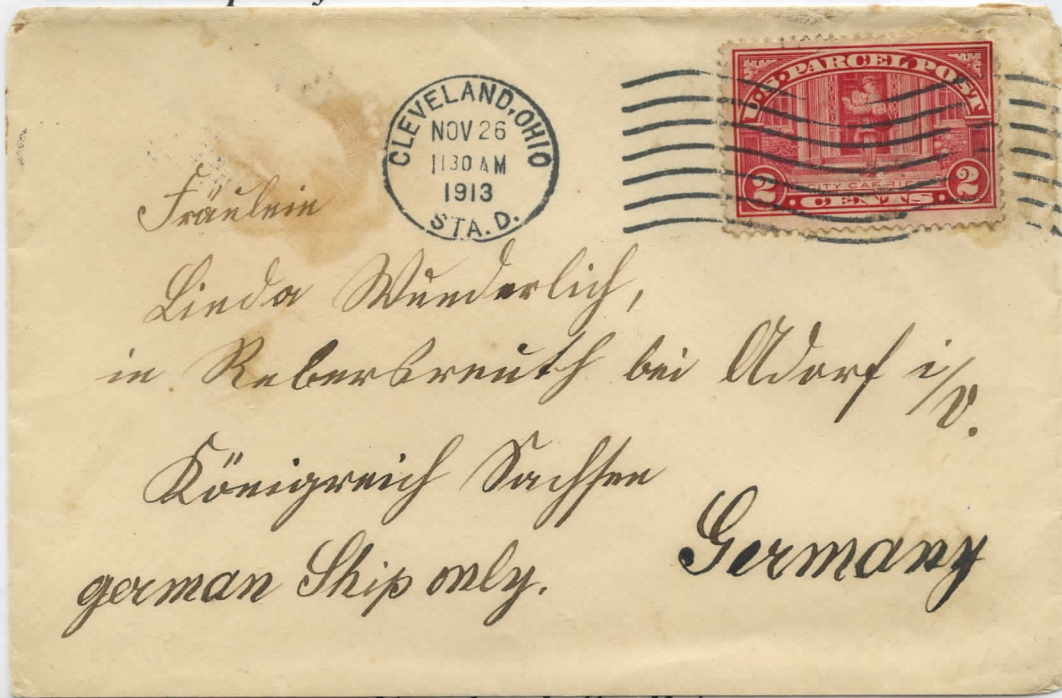 CLEVELAND, OHIO
NOV 26
1130 AM
1913
STA. D.
U.S. PARCEL POST
CITY CARRIER
2 CENTS 2
Fräulein
Linda Wunderlich,
in Rebersreuth bei Adorf i/V.
Königreich Sachsen
Germany
german Ship only.